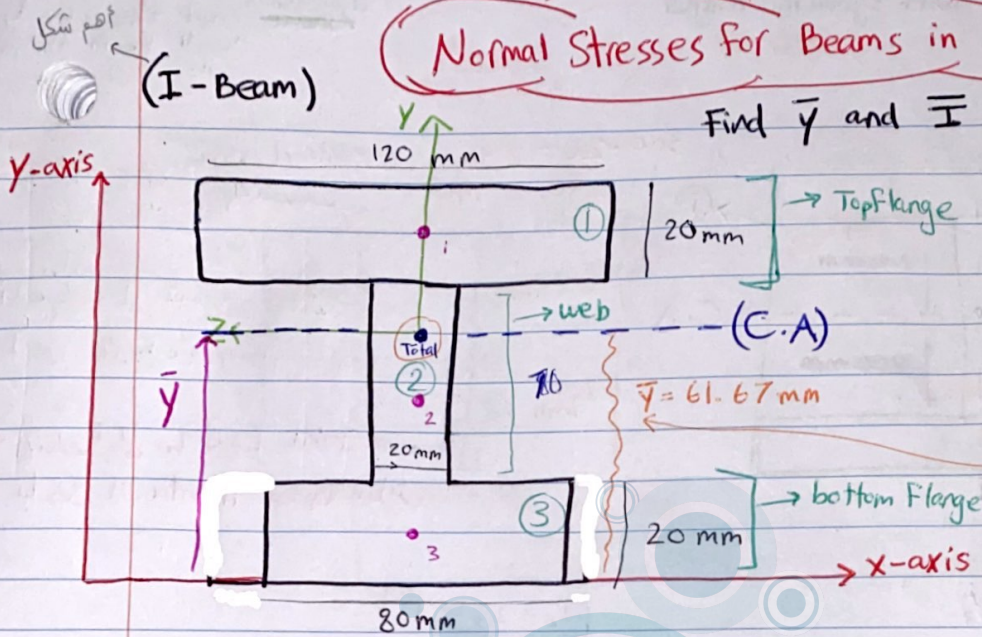 أهم شكل
(I-Beam)
Normal Stresses for Beams in
Find ȳ and I̿
Y-axis
Y
120 mm
①
20mm
→ Top flange
1
→ web
Z
(C.A)
Total
②
ȳ
2
ȳ = 61.67 mm
20mm
→ bottom Flange
③
20 mm
3
x-axis
80mm